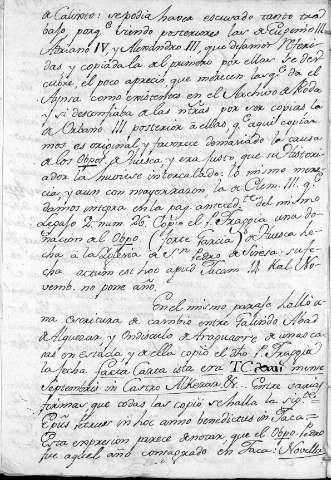 de Calixto: se podia haver escusado tanto tra-
bajo, porq.e siendo posteriores las de Eugenio III
Adriano IV, y Alexandro III, que dejamos referi-
das y copiada la del primero por ellas se des-
cubre el poco aprecio que merecen las q.e da el
como existentes en el Archivo de Roda
y si desconfiaba de las ntras por ser copias la
de Urbano III posterior à ellas q.e aqui copia-
mos es original, y favorece demasiado la causa
de los Obpos. de Huesca, y era justo, que su Histori-
ador la huviese intercalado: lo mismo mere-
cia, y aun con mayor razon la de Clem. III. q.e
damos integra en la pag. anteced.te del mismo
Legajo 2. num. 26. Copio el P. Traggia una do-
nacion del Obpo. (Jorce Garcia) de Huesca he-
cha à la Iglesia de S.n Pedro de Siresa: su fe-
cha actum est hoc apud Iacam III Kal. No-
vemb. no pone año.
En el mismo parage hallò u-
na escritura de cambio entre Galindo Abad
de Alquezar, y de Araguarre de unas ca-
sas en Estada, y de ella copiò el dho P. Traggia
la fecha. facta Carta ista era TC mense
Septembris in Castro Alkezar &. Entre varias
firmas que todas las copiò se halla la sig.te
Epus in hoc anno benedictus in Iaca=
Esta expresion parece denotar que el Obpo. Pedro
fue aquel año consagrado en Jaca: Novell